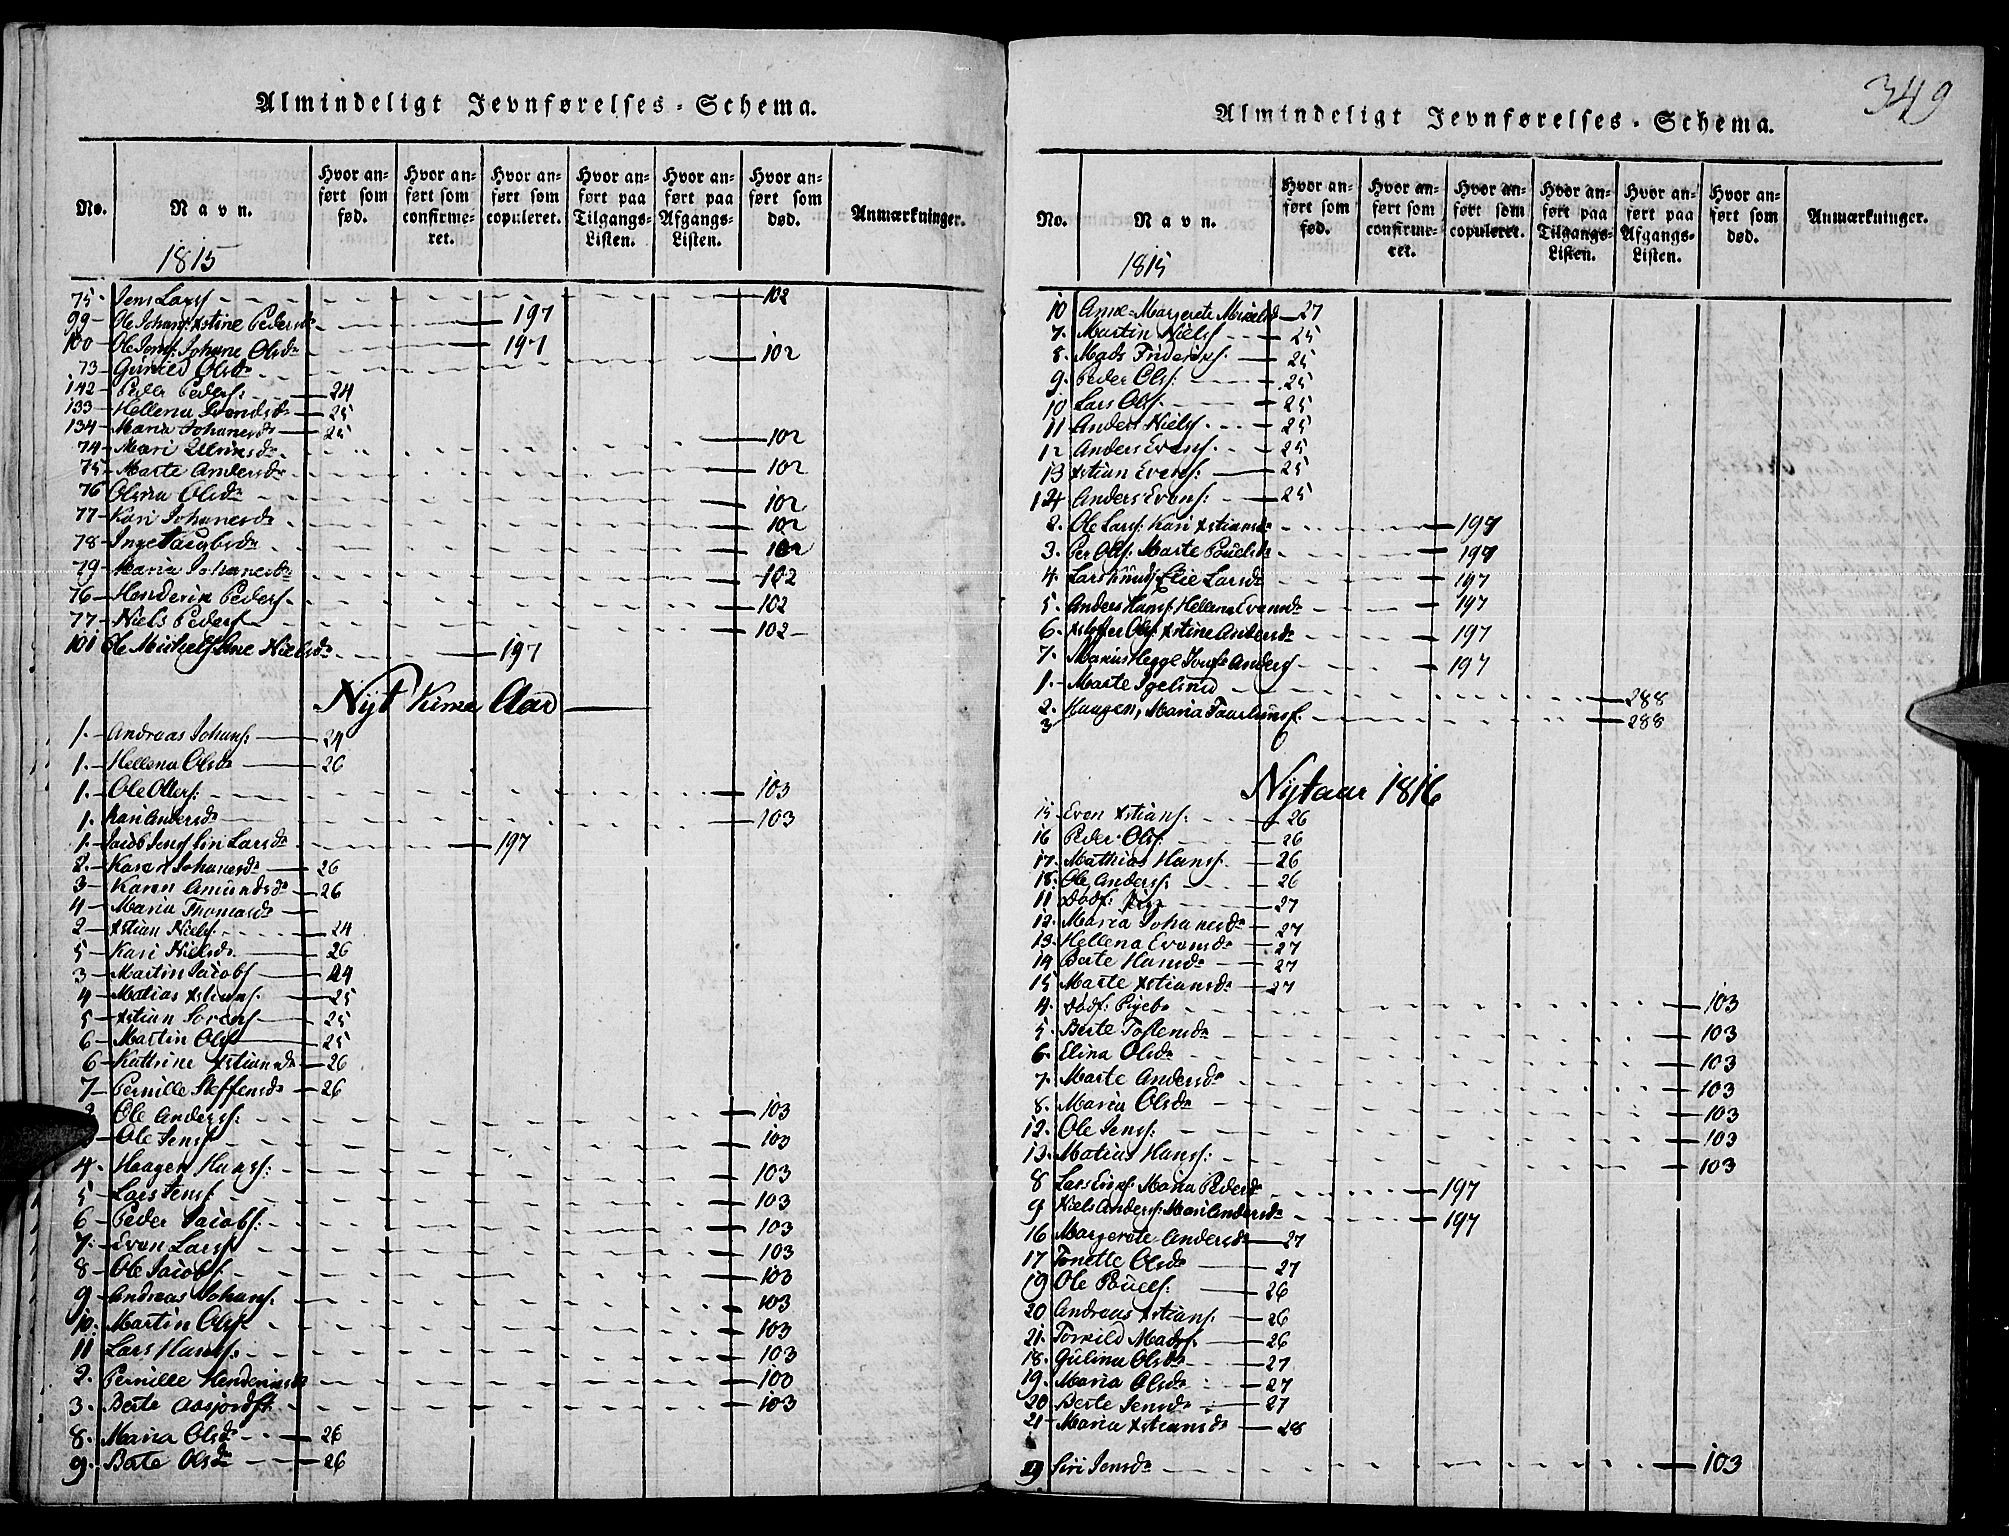 Almindeligt Jevnførelses-Schema.
No. Navn. Hvor anført som fød. Hvor anført som confirmeret. Hvor anført som copuleret. Hvor anført paa Tilgangs-Listen. Hvor anført paa Afgangs-Listen. Hvor anført som død. Anmærkninger.
1815
75- Jens Larss 102
99- Ole Johans: Xstine Pedersdr 197
100- Ole Jenss: Johane Olsdr 197
73- Gunild Olsdr 102
142- Peder Peders: 24
133- Hellena Svendsdr 25
134- Maria Johanesdr 25
74- Mari 102
75- Marte Andersdr 102
76 Olina Olsdr 102
77- Kari Johanesdr 102
78- Inge 102
79- Maria Johanesdr 102
76- Henderik Peders 102
77- Niels Peders 102
101 Ole Michels Ane Nielsdr 197
Nyt Kirke Aar
1.- Andreas Johans: 24
1.- Hellena Olsdr 26
1.- Ole Olles: 103
1.- Kari Andersdr 103
1.- Jacob Jens Siri Larsdr 197
2.- Karen Johanesdr 26
3- Karen Amundsdr 26
4- Maria Thomasdr
2- Xstian Niels: 24
5- Kari Nielsdr 26
3- Martin Jacobs 24
4- Matias Xstians: 25
5- Xstian Sorens 25
6- Martin Ols 25
6- Kathrine Xstiansdr 26
7- Pernille Steffensdr 26
2 Ole Anderss: 103
3- Ole Jenss 103
4- Haagen Hanss: 103
5- Lars Jens: 103
6- Peder Jacobs: 103
7- Even Larss 103
8- Ole Jacobs: 103
9- Andreas Johans: 103
10- Martin Ols: 103
11 Lars Hans: 103
2. Pernille Henderiksdr 103
3. Berte 103
8. Maria Olsdr 26
9. Berte Olsdr 26
349
Almindeligt Jevnførelses-Schema.
No. Navn. Hvor anført som fød. Hvor anført som confirmeret. Hvor anført som copuleret. Hvor anført paa Tilgangs-Listen. Hvor anført paa Afgangs-Listen. Hvor anført som død. Anmærkninger.
1815
10 Anne Margrete Mikelsd 27
7. Martin Niels 25
8. Mads Frideriks: 25
9. Peder Ols: 25
10 Lars Ols: 25
11 Anders Niels 25
12 Anders Evens: 25
13 Xstian Evens: 25
14 Anders Evens: 25
2. Ole Larss: Kari Xstiansdr 197
3. Per Ols: Marte Pouelsdr 197
4. Lars Knuds Elie Larsdr 197
5. Anders Hans: Hellena Evensdr 197
6. Xstoffer Ols: Xstine Andersdr 197
7. Marius Hegge Anders 197
1.- Marte Igelsrud 288
2. Haagen, Maria 288
3
Nytaar 1816
15 Even Xstians: 26
16 Peder Ols: 26
17. Mathias Hans: 26
18. Ole Anders: 26
11 Dødf: Pige 27
12. Maria Johanesdr 27
13. Hellena Evensdr 27
14 Berte Hansdr 27
15 Marte Xstiansdr 27
4. Dødf: Pigeb 103
5. Berte Tostensdr 103
6. Elina Olsdr 103
7. Marte Andersdr 103
8. Maria Olsdr 103
12. Ole Jenss: 103
13. Matias Hanss: 103
8 Lars Maria Pedersdr 197
9 Niels Anders: Mari Andersdr 197
16 Margrete Andersdr 27
17 Tonette Olsdr 27
19 Ole Pouels: 26
20 Andreas Xstians: 26
21. Torkild Mads: 26
18. Gulina Olsdr 27
19. Maria Olsdr 27
20 Berte Jensdr 27
21 Maria Xstiansdr 28
9 Siri Jensdr 103